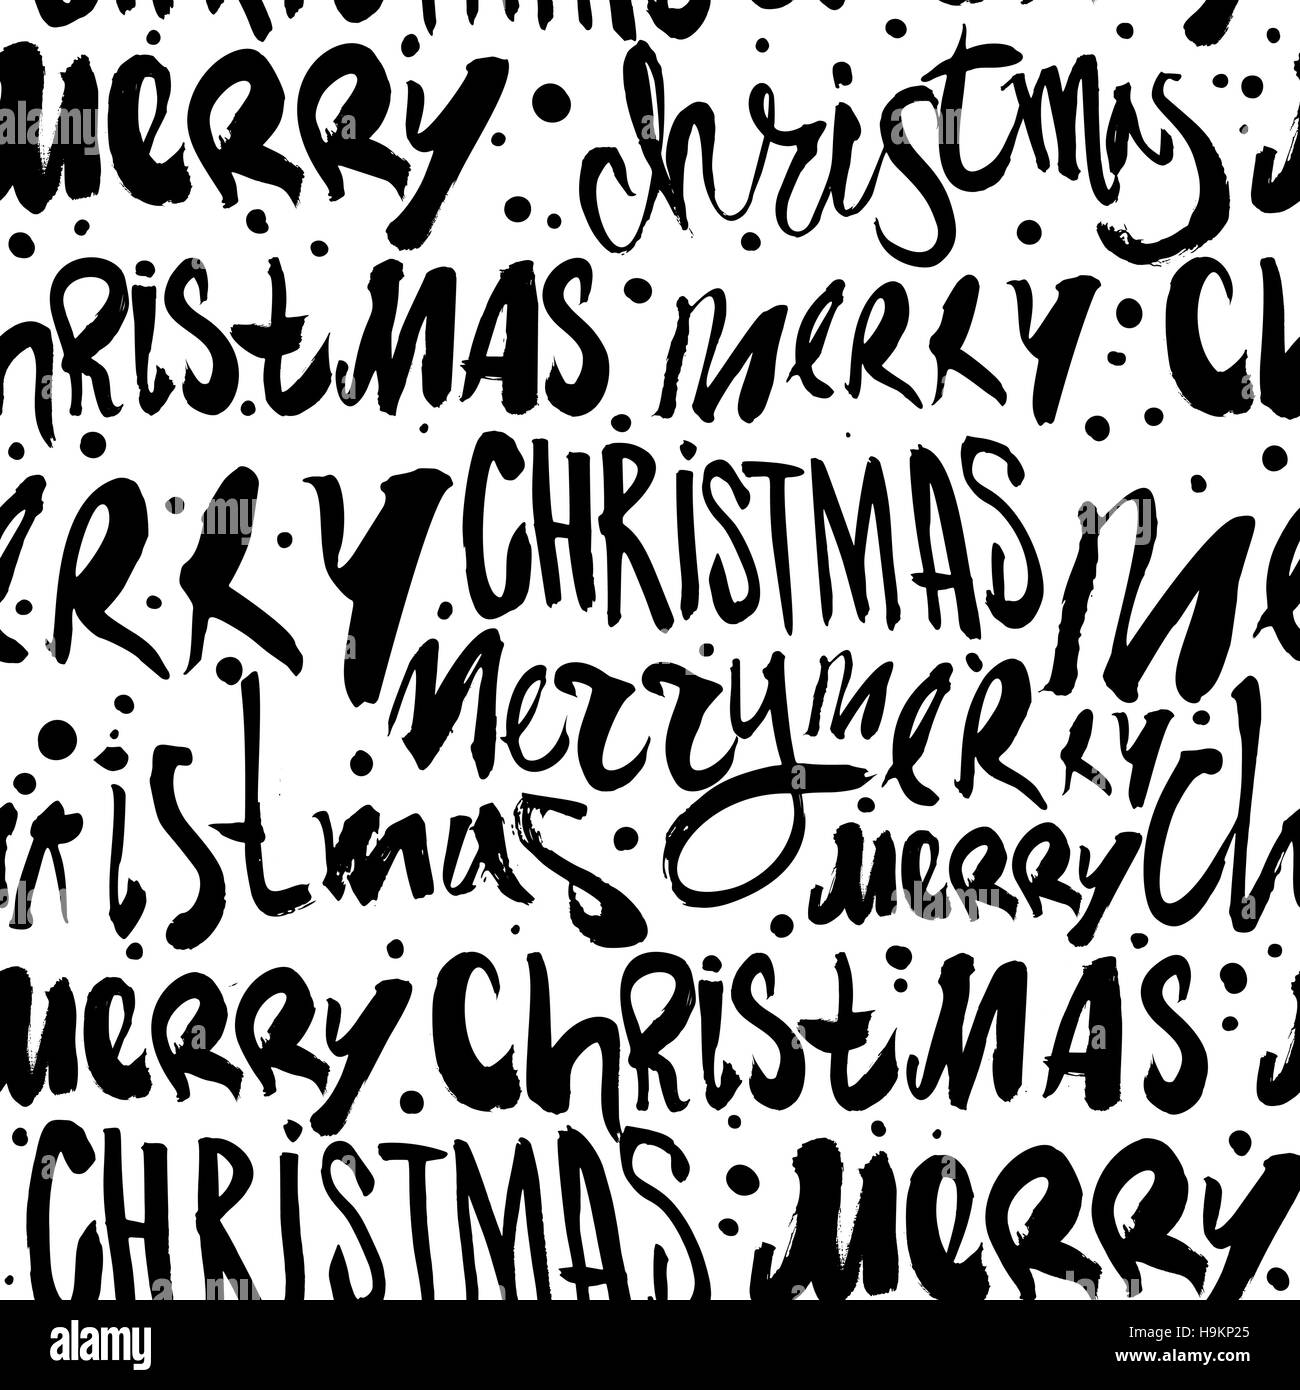 CHRISTMAS
merry christmas
christmas merry Ch
erry CHRISTMAS me
merry merry
christmas merry Ch
merry Christmas
CHRISTMAS merry
alamy
Image ID: H9KP25
www.alamy.com